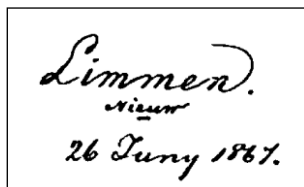 Limmen.
Nieuw
26 Juny 1867.